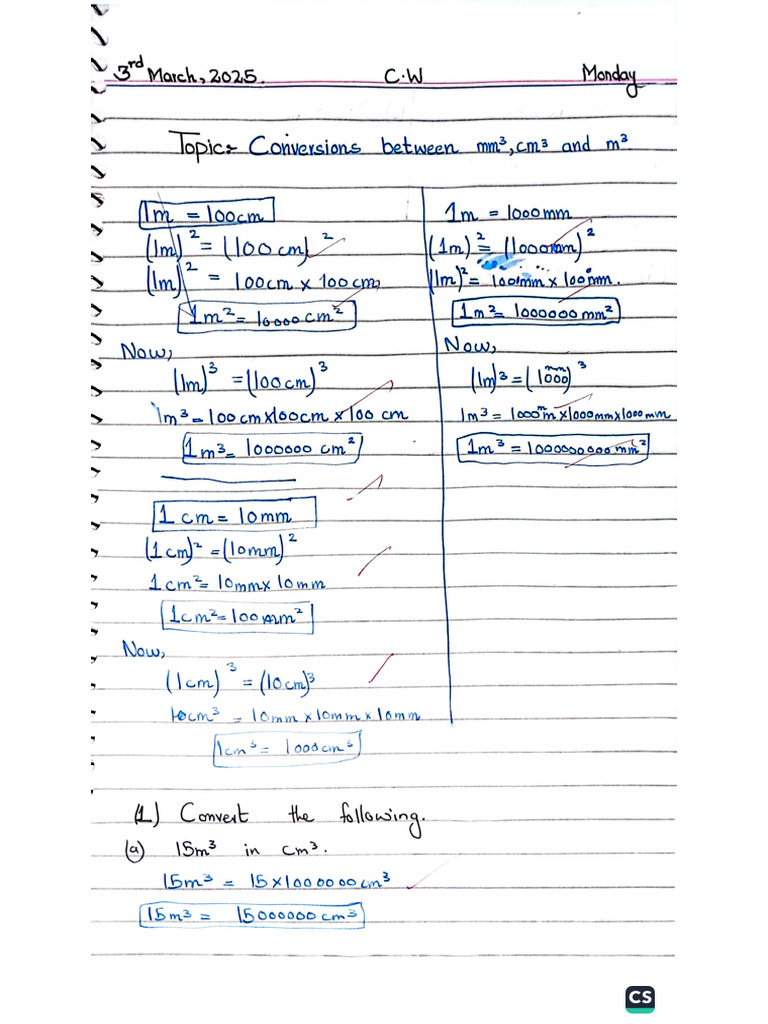 3rd March, 2025. C.W Monday
Topic:- Conversions between mm³, cm³ and m³
1m = 100cm
(1m)² = (100cm)²
(1m)² = 100cm x 100cm
1m² = 10000 cm²
Now,
(1m)³ = (100cm)³
1m³ = 100cm x 100cm x 100 cm
1m³ = 1000000 cm²
1 cm = 10mm
(1cm)² = (10mm)²
1cm² = 10mm x 10mm
1cm² = 100mm²
Now,
(1cm)³ = (10cm)³
10cm³ = 10mm x 10mm x 10mm
1cm³ = 1000cm³
1m = 1000mm
(1m)² = (1000mm)²
(1m)² = 1000mm x 1000mm.
1m² = 1000000 mm²
Now,
(1m)³ = (1000mm)³
1m³ = 1000mm x 1000mm x 1000mm
1m³ = 1000000000 mm²
(1) Convert the following.
(a) 15m³ in cm³.
15m³ = 15 x 1000000 cm³
15m³ = 15000000 cm³
CS